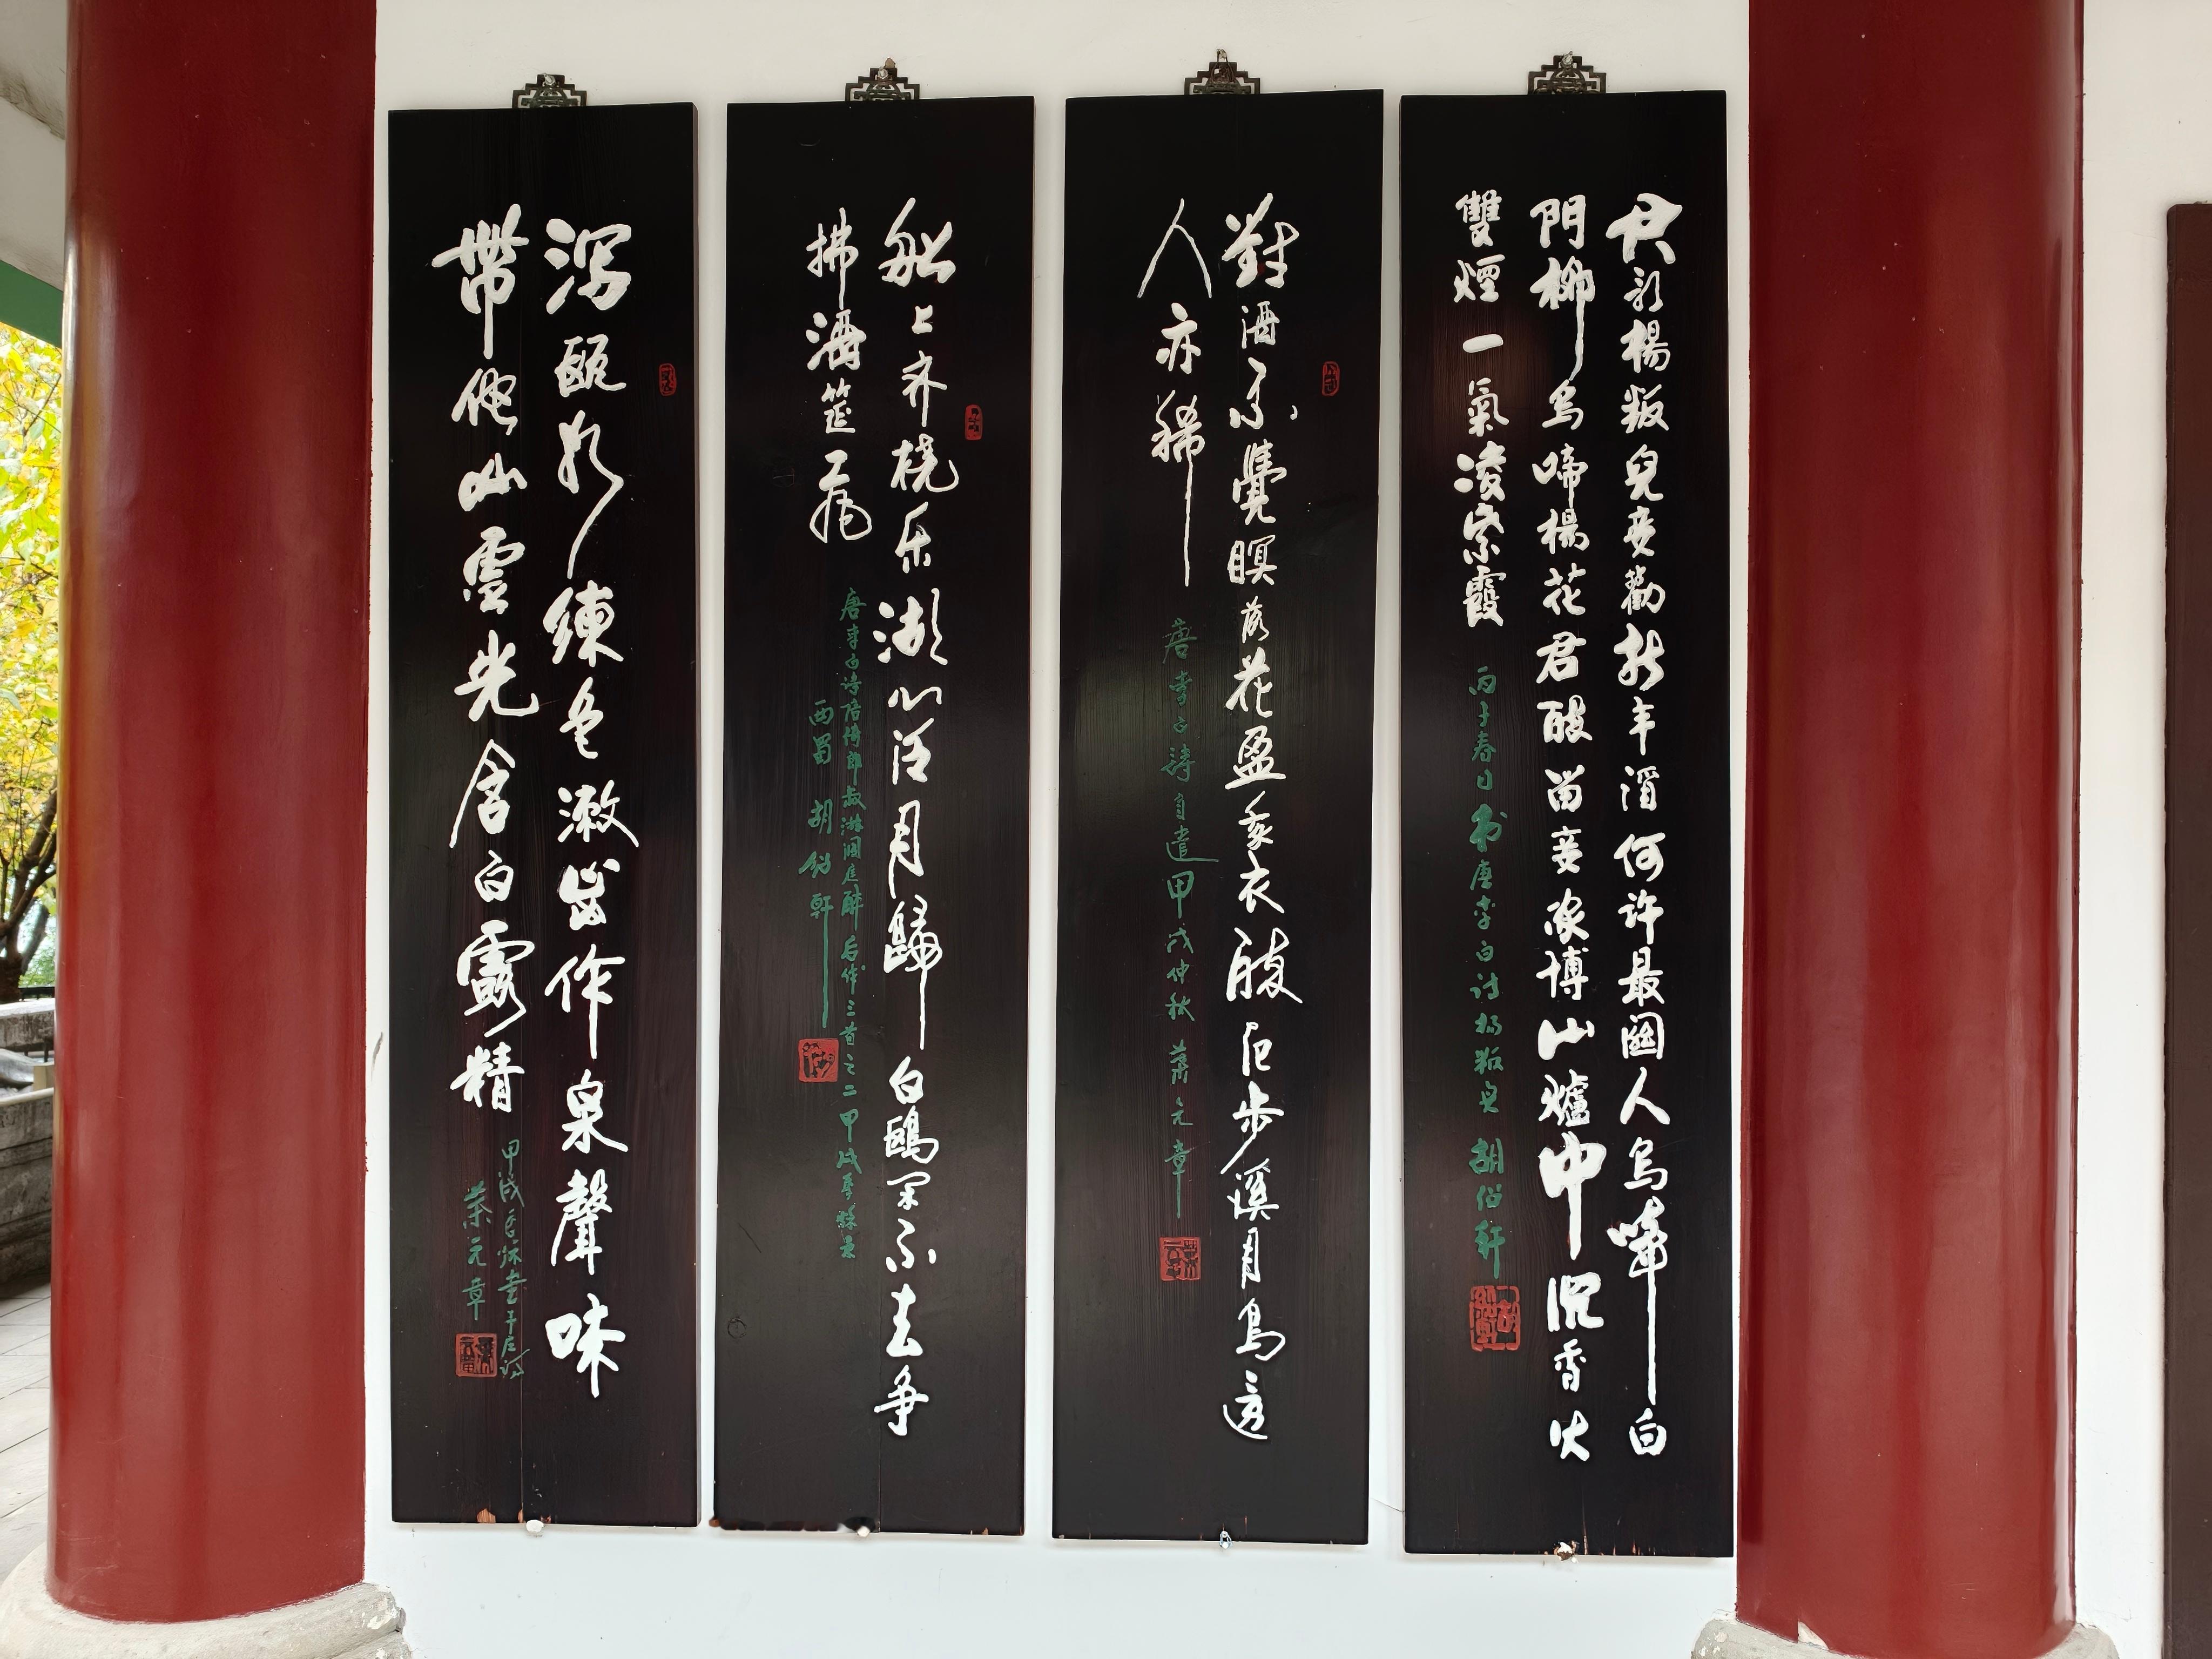 君歌楊叛兒妾勸新豐酒何許最關人烏啼白
門柳烏啼楊花君醉留妾家博山爐中沉香火
雙煙一氣凌紫霞
丙子春日書唐李白詩楊叛兒 胡俗軒
對酒不覺暝落花盈我衣醉起步溪月鳥還
人亦稀
唐李白詩自遣甲戌仲秋 葉元章
船上齐橈乐湖心泛月歸白鷗閑不去争
拂酒筵飛
唐李白诗陪侍郎叔游洞庭醉后作三首之二甲戌
西蜀 胡 軒
瀉甌如練色漱齒作泉聲味
帶他山雪光含白露精
甲戌
葉元章